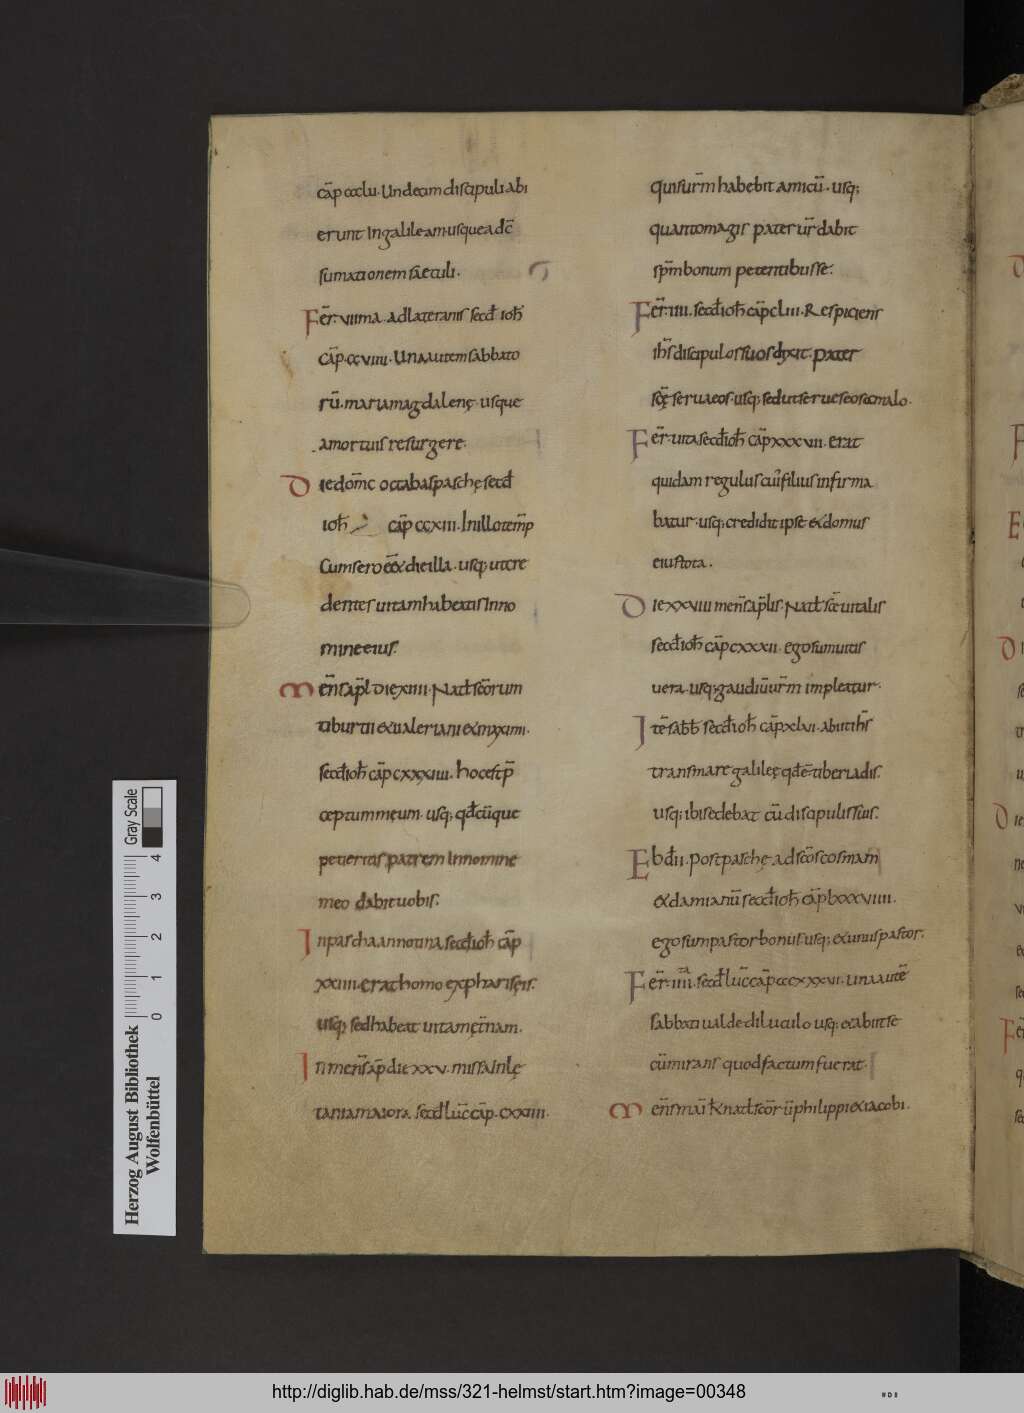 cap̄ ccclu. Undecim discipuli abi
erunt In galileam. usque ad c̄
sumationem saeculi.
Fer̄. uiima. ad lateranis secd̄ ioh̄
cap̄. ccuiiii. Una autem sabbato
rū. maria magdalenę. usque
a mortuis resurgere.
Die dom̄c octabas paschę secd̄
ioh̄ cap̄ ccxiii. In illo tem̄p
Cum sero eēt die illa. usq; ut cre
dentes uitam habeatis In no
mine eius.
Men̄s ap̄l Die xiiii. Nat̄ sc̄orum
tiburtii & ualeriani & maximi.
secd̄ ioh̄ cap̄ cxxxiiii. hoc est p̄
ceptum meum. usq; qd̄cūque
petieritis patrem In nomine
meo dabit uobis.
In pascha annotina secd̄ ioh̄ cap̄
xxiiii. erat homo ex phariseis.
usq; sed habeat uitam ęt̄nam.
In men̄s ap̄ die xxv. missa In lę
tania maiora secd̄ luc̄ cap̄. cxxiiii.
qui sur̄m habebit amicū. usq;
quanto magis pater ur̄ dabit
sp̄m bonum petentibus se.
Fer̄. iiii. secd̄ ioh̄ cap̄ cliii. Respiciens
ih̄s discipulos suos dixit. pater
sc̄ę serua eos. usq; sed ut serues eos ec malo.
Fer̄. uita secd̄ ioh̄ cap̄ xxxuii. erat
quidam regulus cui' filius infirma
batur. usq; credidit ipse & domus
eius tota.
Die xxuiii men̄s ap̄lis. Nat̄ sc̄e uitalis
secd̄ ioh̄ cap̄ cxxxii. ego sum uitis
uera. usq; gaudiū ur̄m impleatur.
Itē sabb̄ secd̄ ioh̄ cap̄ xlui. abiit ih̄s
trans mare galileę qd̄ ē tiberiadis.
usq; ibi sedebat cū discipulis suis.
Ebd̄ ii. post paschę ad sc̄os cosmam
& damianū secd̄ ioh̄ cap̄ lxxxuiiii.
ego sum pastor bonus. usq; & unus pastor.
Fer̄. iiii. secd̄ luc̄ cap̄ cccxxxui. una autē
sabbati ualde diluculo usq; & abiit se
cū mirans quod factum fuerat.
Men̄s mai' k̄ nat̄ sc̄or̄ū philippi & iacobi.
Herzog August Bibliothek
Wolfenbüttel
0 1 2 3 4
Gray Scale
http://diglib.hab.de/mss/321-helmst/start.htm?image=00348